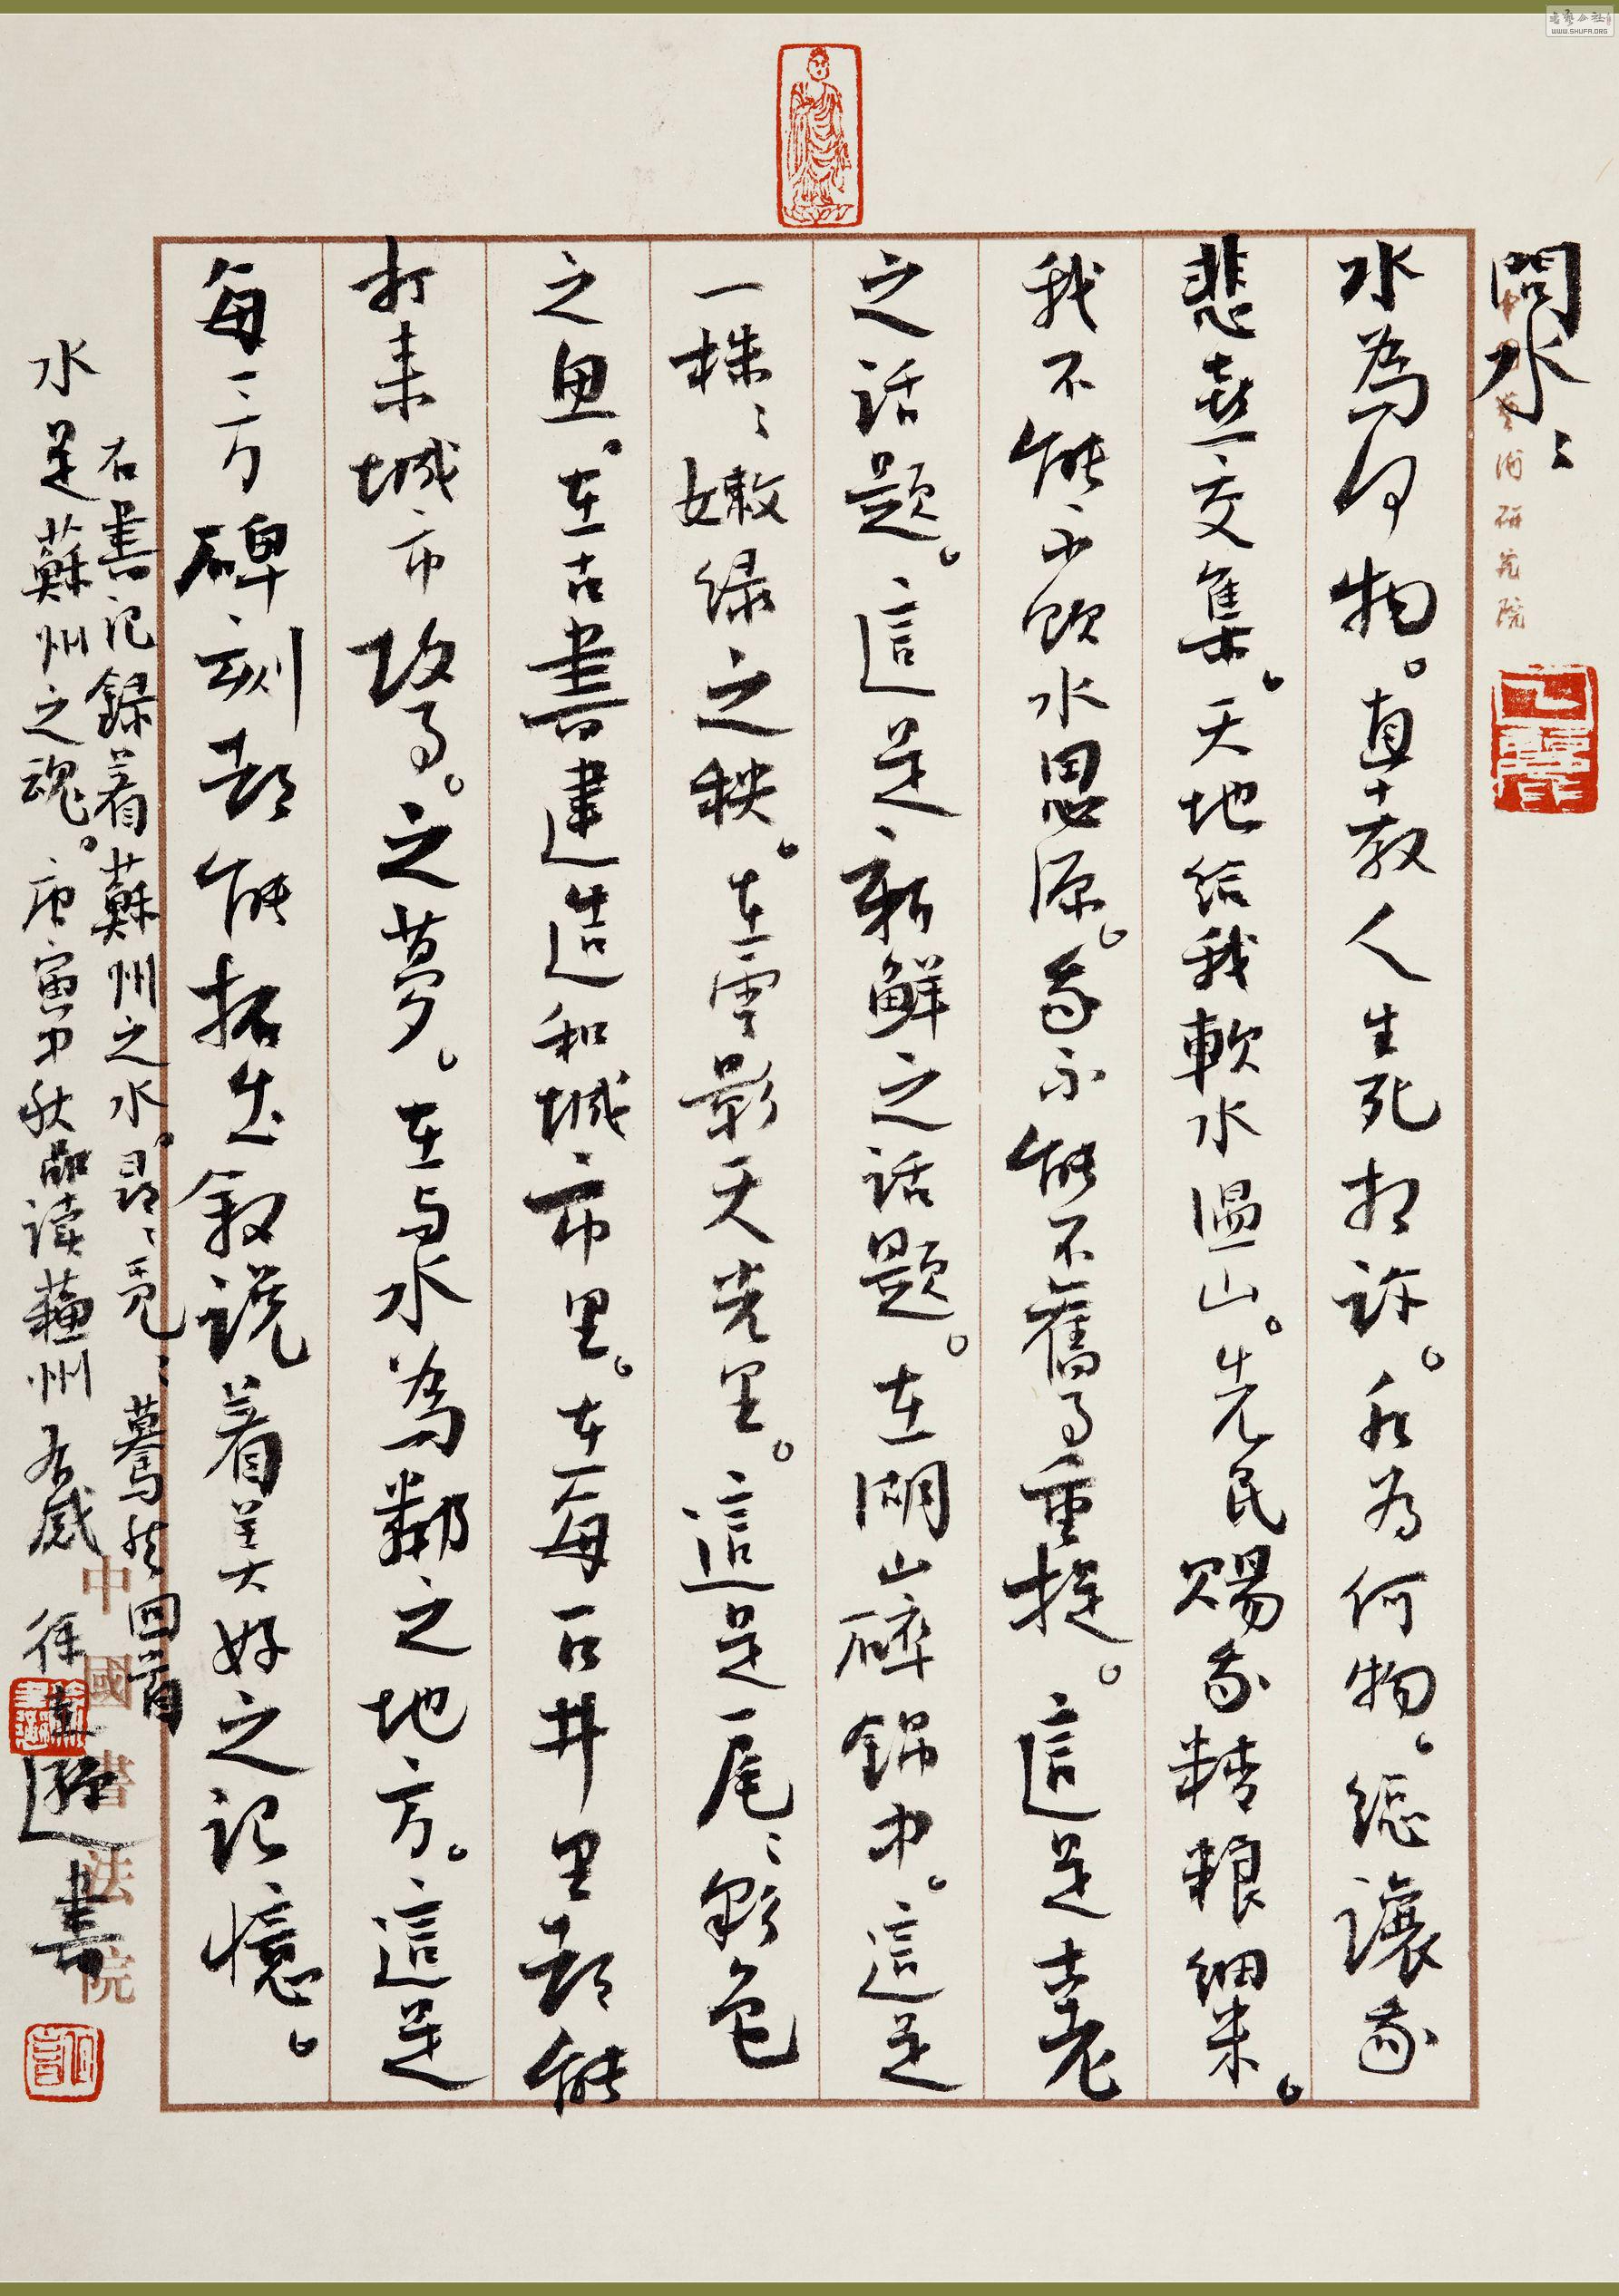 問水
水為何物。直教人生死相許。我為何物。總讓我
悲喜交集。天地給我軟水溫山。先民賜我精粮細米。
我不能不飲水思源。我不能不舊事重提。這是老
之話題。這是新鮮之話題。在湖山碎錦中。這是
一株嫩绿之秧。在雲影天光里。這是一尾彩色
之魚。在古書建造和城市里。在每一口井里都能
打来城市故事。之夢。在與水為鄰之地方。這是
每一方碑刻都能拓出叙说着美好之记憶。
右書记録着蘇州之水。尋尋覓覓驀然回首
水是蘇州之魂。庚寅中秋品读蘇州有感 徐書
中國藝術研究院
中國書法院
WWW.SHUFA.ORG